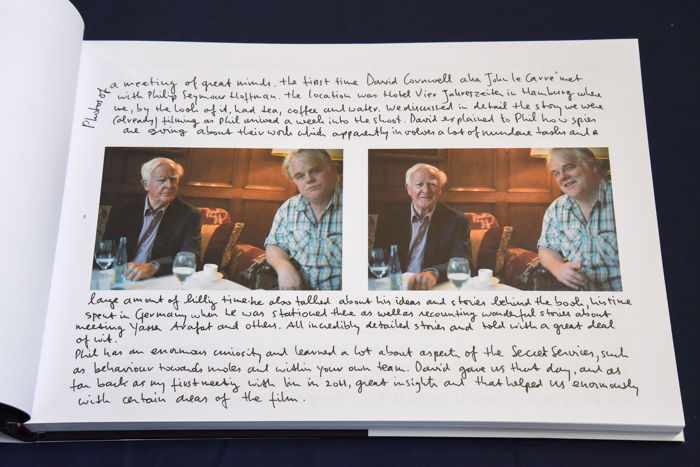 Photos of a meeting of great minds. the first time David Cornwell aka John le Carré met
with Philip Seymour Hoffman. the location was Hotel Vier Jahreszeiten in Hamburg where
we, by the look of it, had tea, coffee and water. We discussed in detail the story we were
(already) filming as Phil arrived a week into the shoot. David explained to Phil how spies
are going about their work which apparently involves a lot of mundane tasks and a
large amount of killing time. he also talked about his ideas and stories behind the book, his time
spent in Germany when he was stationed there as well as recounting wonderful stories about
meeting Yassa Arafat and others. All incredibly detailed stories and told with a great deal
of wit.
Phil has an enormous curiosity and learned a lot about aspects of the Secret Services, such
as behaviour towards moles and within your own team. David gave us that day, and as
far back as my first meeting with him in 2011, great insights and that helped us enormously
with certain areas of the film.